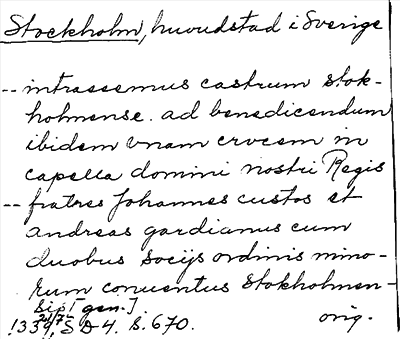 Stockholm, huvudstad i Sverige
-- intrassemus castrum stok-
holmense. ad benedicendum
ibidem vnam crucem in
capella domini nostri Regis
-- fratres Johannes custos et
Andreas gardianus cum
duobus socijs ordinis mino-
rum conuentus Stokholmen-
sis [gen.]
1339 21/7, SD 4. s. 670. orig.